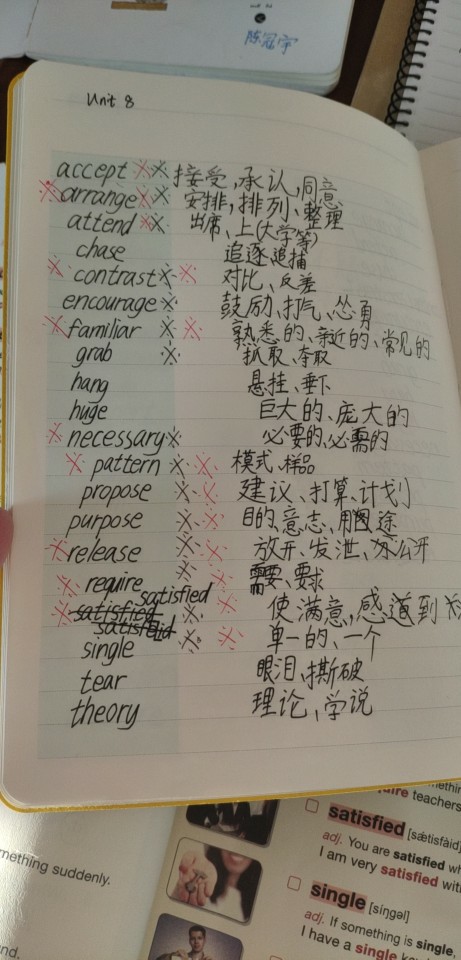 陈冠宇
Unit 8
accept ※※ 接受,承认,同意
※arrange※※ 安排,排列、整理
attend ※※ 出席、上(大学等)
chase 追逐、追捕
※ contrast※※ 对比、反差
encourage※ 鼓励、打气、怂勇
※familiar ※ ※ 熟悉的、亲近的、常见的
grab ※ 抓取、夺取
hang 悬挂、垂下
huge 巨大的、庞大的
※necessary※ 必要的、必需的
※ pattern ※ ※ 模式、样品
propose ※ ※ 建议、打算、计划
purpose ※ ※ 目的、意志、用途
※release ※ ※ 放开、发泄、公开
※ require ※ 需要、要求
satisfied
※ satisfied ※ ※ 使满意,感道到
satisfeid
single ※ ※ 单一的、一个
tear 眼泪、撕斯破
theory 理论、学说
quire teachers
satisfied [sǽtisfàid]
adj. You are satisfied wh
I am very satisfied wit
single [síŋgəl]
adj. If something is single,
I have a single
mething suddenly.
nd.